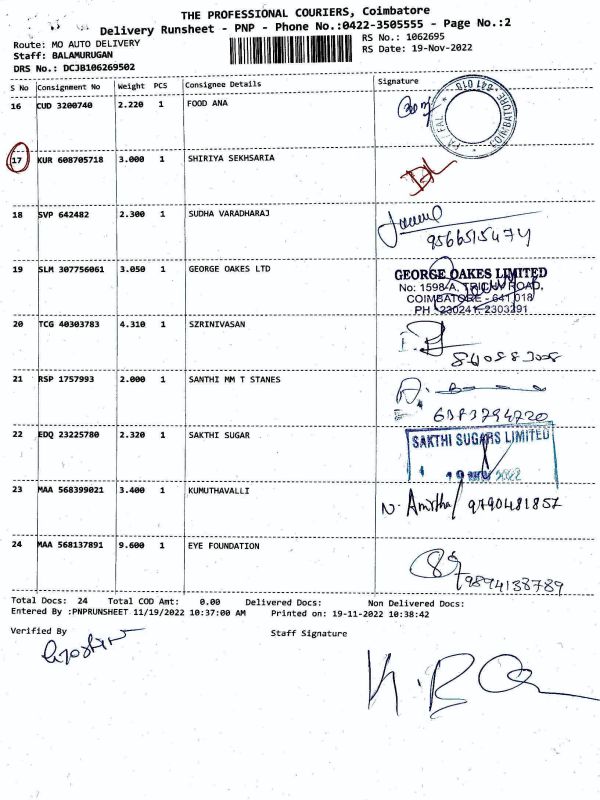 THE PROFESSIONAL COURIERS, Coimbatore
Delivery Runsheet - PNP - Phone No.:0422-3505555 - Page No.:2
Route: MO AUTO DELIVERY
RS No.: 1062695
Staff: BALAMURUGAN
RS Date: 19-Nov-2022
DRS No.: DCJB106269502
S No Consignment No Weight PCS Consignee Details Signature
16 CUD 3200740 2.220 1 FOOD ANA
COIMBATORE 641 018
17 KUR 608705718 3.000 1 SHIRIYA SEKHSARIA
18 SVP 642482 2.300 1 SUDHA VARADHARAJ
9566515474
19 SLM 307756061 3.050 1 GEORGE OAKES LTD
GEORGE OAKES LIMITED
No: 1598-A, TRICHY ROAD,
COIMBATORE - 641 018
PH : 230241, 2303291
20 TCG 40303783 4.310 1 SZRINIVASAN
21 RSP 1757993 2.000 1 SANTHI MM T STANES
6383794720
22 EDQ 23225780 2.320 1 SAKTHI SUGAR
SAKTHI SUGARS LIMITED
19 NOV 2022
23 MAA 568399021 3.400 1 KUMUTHAVALLI
N. Amirtha 9790481857
24 MAA 568137891 9.600 1 EYE FOUNDATION
9894138789
Total Docs: 24 Total COD Amt: 0.00 Delivered Docs: Non Delivered Docs:
Entered By :PNPRUNSHEET 11/19/2022 10:37:00 AM Printed on: 19-11-2022 10:38:42
Verified By
Staff Signature